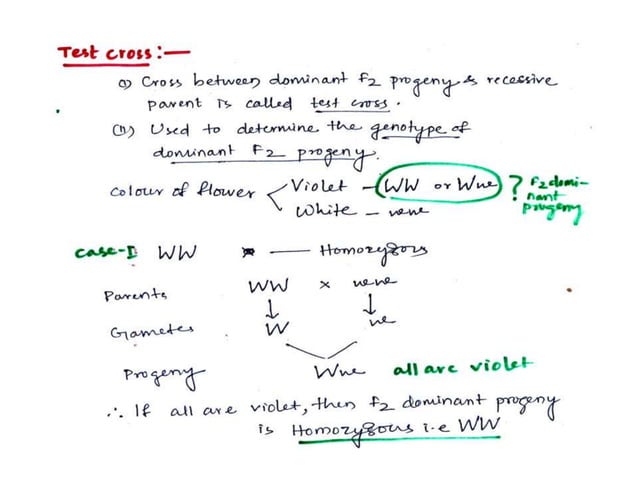 Test cross:-
(i) Cross between dominant F2 progeny & recessive
parent is called test cross.
(ii) Used to determine the genotype of
dominant F2 progeny.
Colour of flower < Violet - WW or Ww ? F2 domi-
nant
progeny
White - ww
case-I WW - Homozygous
Parents WW x ww
Gametes W w
Progeny Ww all are violet
∴ If all are violet, then F2 dominant progeny
is Homozygous i.e WW